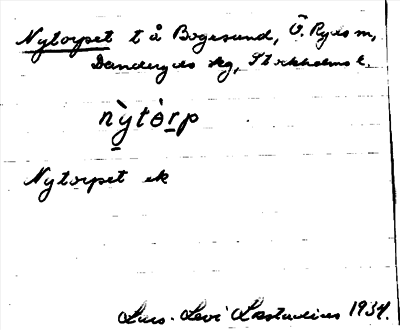 Nytorpet t å Bogesund, Ö. Ryds sn,
Danderyds skg, Stockholms l.
nỳtòrp
Nytorpet ek
Lars-Levi Læstadius 1934.